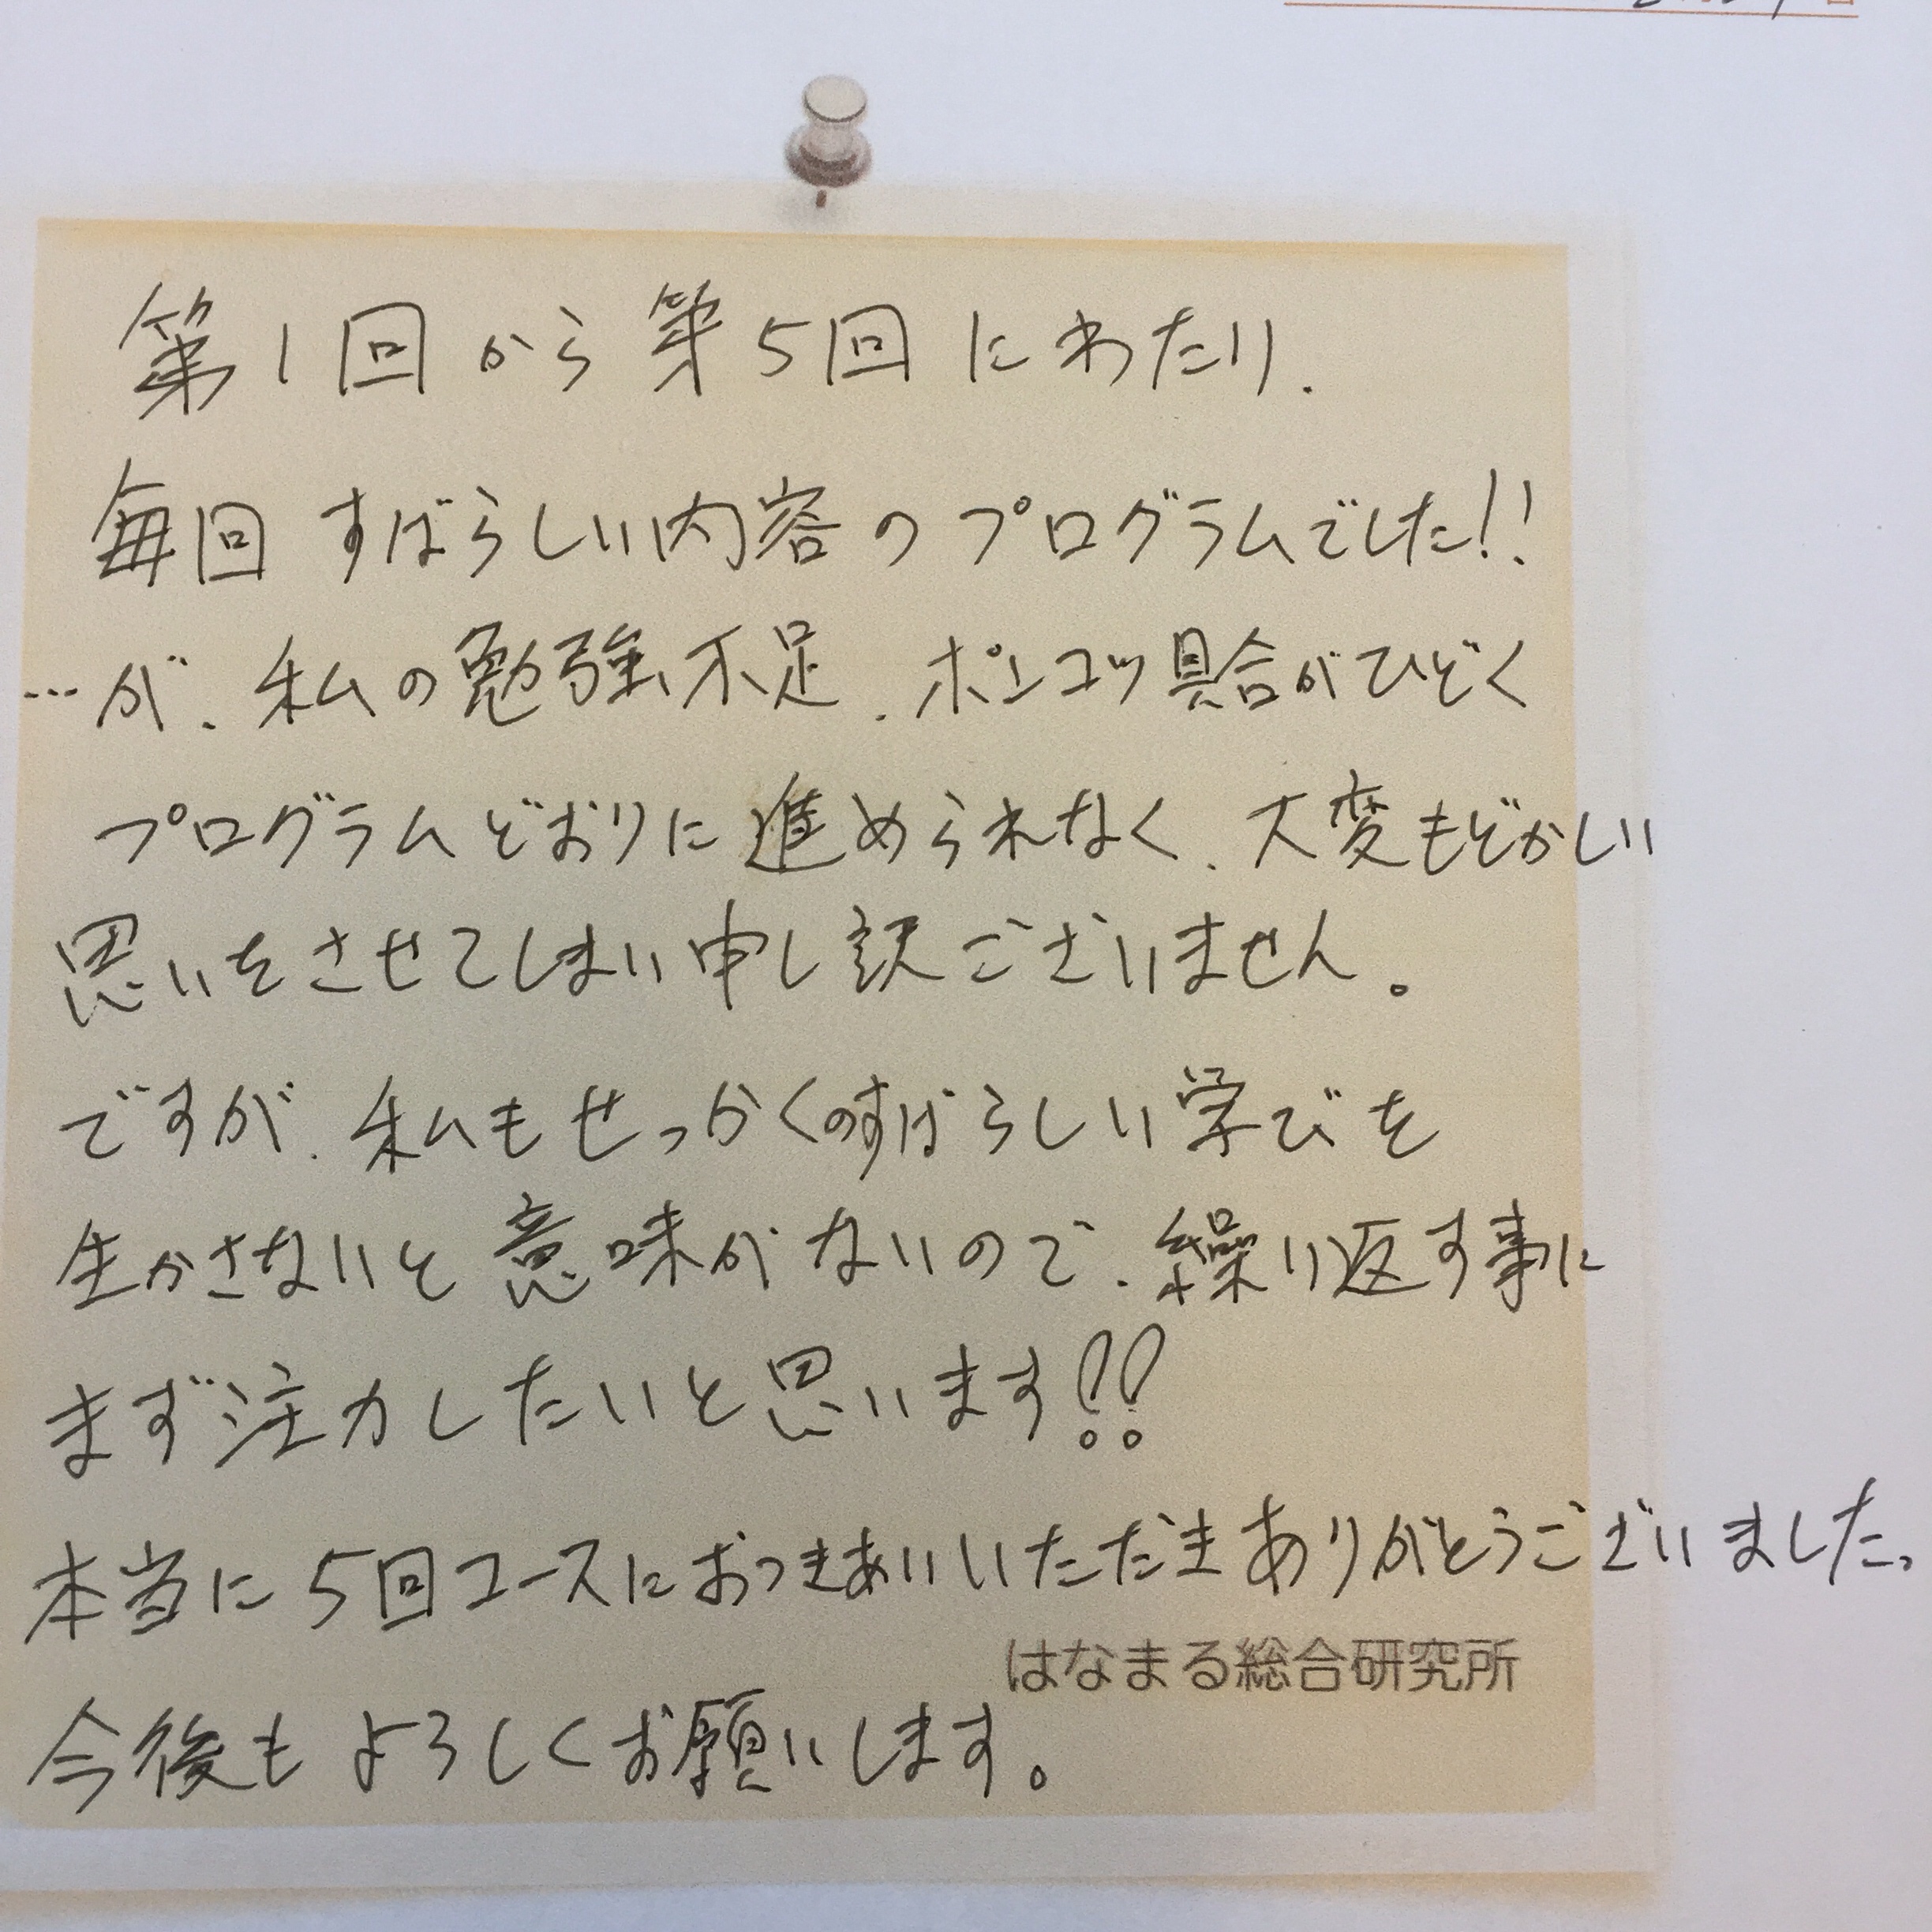 第1回から第5回にわたり、
毎回すばらしい内容のプログラムでした!!
…が、私の勉強不足、ポンコツ具合がひどく
プログラムどおりに進められなく、大変もどかしい
思いをさせてしまい申し訳ございません。
ですが、私もせっかくのすばらしい学びを
生かさないと意味がないので、繰り返す事に
まず注力したいと思います!!
本当に5回コースにおつきあいいただきありがとうございました。
はなまる総合研究所
今後もよろしくお願いします。